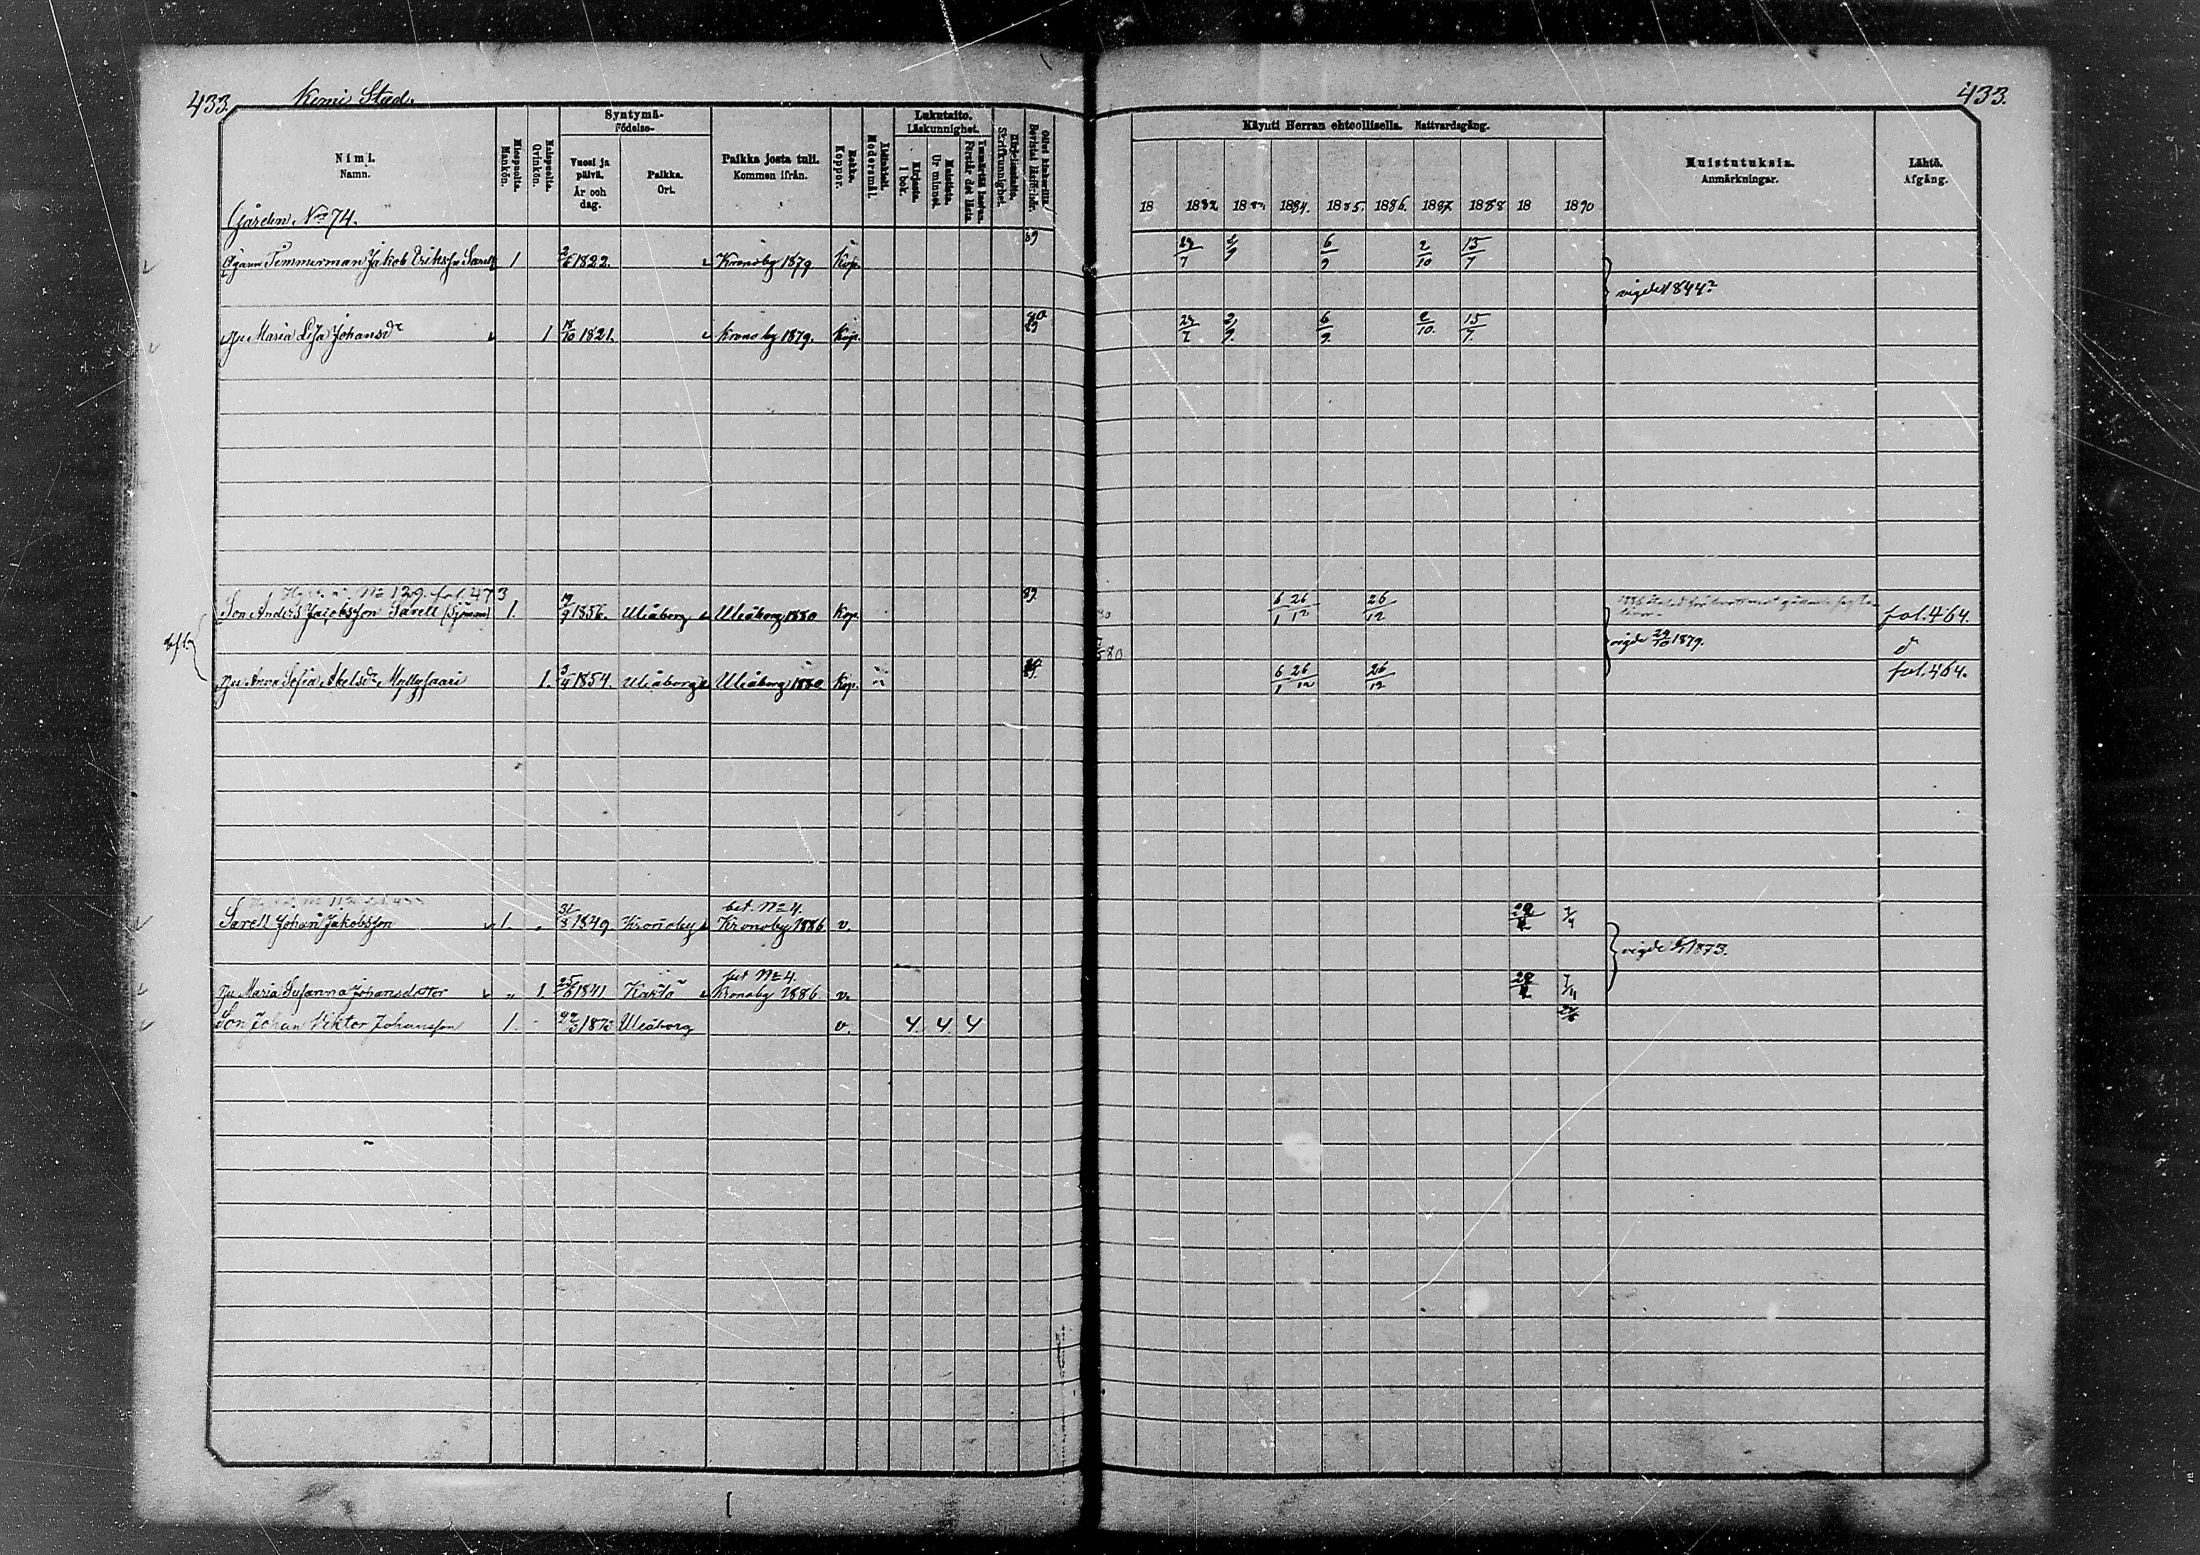 433.
Kemi Stad.
433.
Nimi.
Namn.
Miespuolia.
Mankön.
Naispuolia.
Qvinkön.
Syntymä-
Födelse-
Vuosi ja päivä.
År och dag.
Paikka.
Ort.
Paikka josta tuli.
Kommen ifrån.
Rokko.
Koppor.
Äidinkieli.
Modersmål.
Lukutaito.
Läskunnighet.
Kirjasta.
I bok.
Muistista.
Ur minnet.
Ymmärtää luetun.
Förstår det lästa.
Kirjoitustaito.
Skrifkunnighet.
Käynti Herran ehtoollisella. Nattvardsgång.
18 1882 1883 1884. 1885. 1886. 1887 1888 18 1890
Muistutuksia.
Anmärkningar.
Lähtö.
Afgång.
Gården No 74.
Timmerman Jakob Eriksson Sarell 1 2/6 1822. Kronoby 1879 Kop. 89 29/7 2/9 6/9 2/10 15/7
vigde 1844?
Hu Maria Lisa Johansdr 1 18/10 1821. Kronoby 1879. Kop. 29/7 2/9. 6/9. 2/10. 15/7.
No 129. fol. 473
Son Anders Jacobsson Sarell (Sjöman) 1. 19/9 1856. Uleåborg Uleåborg 1880 Kop. 89. 6/1 26/12 26/12 fol. 464.
vigde 29/10 1879. d
Hu Anna Sofia Akelsdr Myllysaari 1. 3/4 1854. Uleåborg Uleåborg 1880 Kop. 6/1 26/12 26/12 fol. 464.
bet. No 4.
Sarell Johan Jakobsson 1. 31/3 1849 Kronoby Kronoby 1886 v.
vigde 1873.
bet No 4.
Hu Maria Susanna Johansdotter 1 1841 Karlö Kronoby 1886 v.
Son Johan Viktor Johansson 1. 1873 Uleåborg v. 4. 4. 4